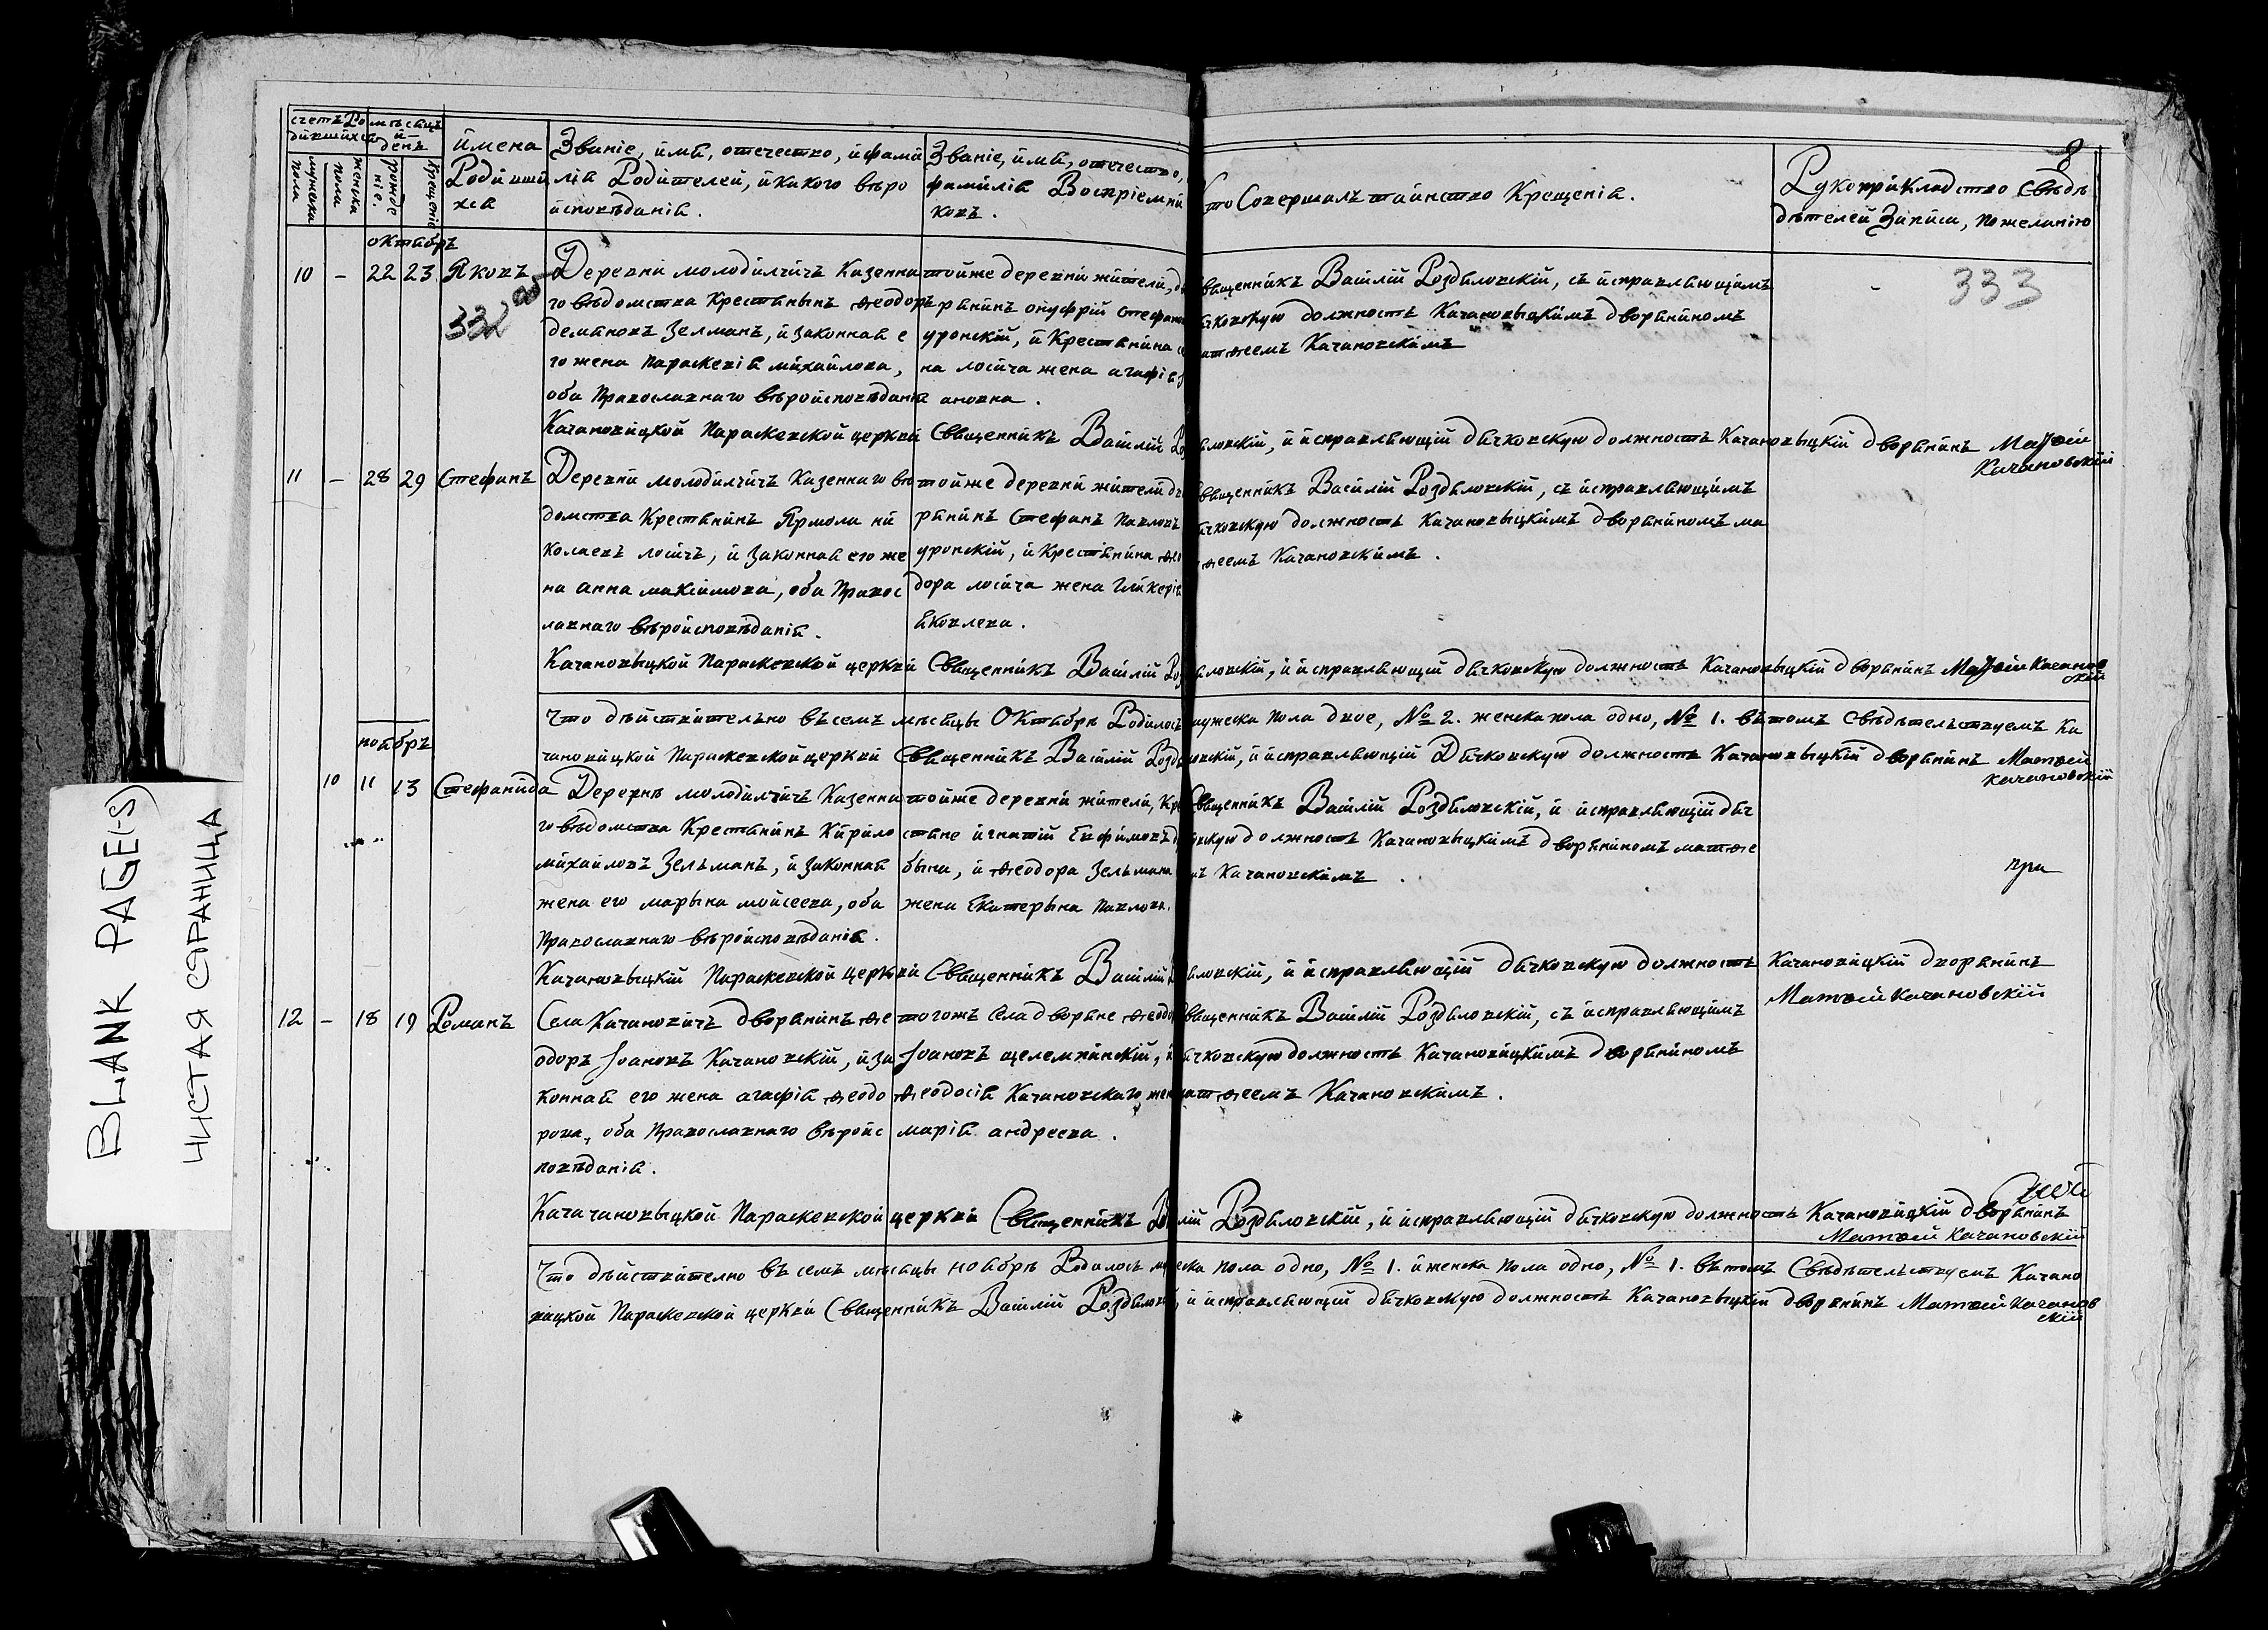 счетъ Ро
дившихся
мѣсяцъ
и
день
мужеска
пола
женска
пола
рожде
ніе.
крещенія
имена
Родивши
хся
Званіе, имя, отечество, и фами
лія Родителей, и какого вѣро
исповѣданія.
Званіе, имя, отечество,
фамилія Воспріемни
ковъ.
кто Совершалъ таинство Крещенія.
Рукоприкладство Свѣдѣ
дѣтелей Записи, по желанію
8
333
332 об
октябрь
10 - 22 23 Яковъ
Деревни молодильчичъ Казенна
го вѣдомства Крестьянинъ Ѳеодоръ
демяновъ Зелманъ, и законная е
го жена Параскевія михайлова,
оба Православнаго вѣроисповѣданія
тойже деревни жители, д
рянинъ онуфрій Стефано
уронскій, и Крестянина
на лосича жена агафія
ановна.
Священникъ Василій Роздяловскій, съ исправляющимъ
дячковскую должность Качановыцкимъ дворяниномъ
матѳеемъ Качановскимъ
Качановицкой Параскевской церкви Священникъ Василій Роздяловскій, и исправляющій дячковскую должность Качановыцкій дворянинъ Матѳей
Качановскій
11 - 28 29 Стефанъ
Деревни молодильчичъ Казеннаго вѣ
домства Крестянинъ Ярмола ни
колаевъ лосичъ, и законная его же
на анна максимова, оба Правос
лавнаго вѣроисповѣданія.
тойже деревни жители дво
рянинъ Стефанъ Павловъ
уронскій, и Крестянина Ѳео
дора лосича жена Гликерія
яковлева.
Священникъ Василій Роздяловскій, съ исправляющимъ
дячковскую должность Качановыцкимъ дворяниномъ ма
тѳеемъ Качановскимъ.
Качановыцкой Параскевской церкви Священникъ Василій Роздяловскій, и исправляющій дячковскую должность Качановыцкій дворянинъ Матѳей Качанов
скій
Что дѣйствительно въ семъ мѣсяцы Октябрѣ Родилось мужеска пола двое, № 2. женска пола одно, № 1. въ томъ Свѣдѣтельствуемъ Ка
чановицкой Параскевской церкви Священникъ Василій Роздяловскій, и исправляющій Дячковскую должность Качановыцкій дворянинъ Матѳей
Качановскій
ноябрь
10 11 13 Стефанида
Деревнѣ молодилчичъ Казенна
го вѣдомства Крестянинъ Кирило
михайловъ Зельманъ, и законная
жена его марына мойсеева, оба
Православнаго вѣроисповѣданія.
тойже деревни жители, Кре
стяне игнатій Евфимовъ
быни, и Ѳеодора Зельмана
жена Екатерына Павлова.
Священникъ Василій Роздяловскій, и исправляющій дяч
ковскую должность Качановыцкимъ дворяниномъ матѳе
мъ Качановскимъ.
при
Качановыцкій Параскевской церкви Священникъ Василій Роздяловскій, и исправляющій дячковскую должность Качановицкій дворянинъ
Матѳей Качановскій
12 - 18 19 Романъ
Села Качановичъ дворянинъ Ѳе
одоръ Іоановъ Качановскій, и за
конная его жена агафія Ѳеодо
рова, оба Православнаго вѣроис
повѣданія.
тогожъ Села дворяне Ѳеодо
Іоановъ щелемпинскій, и
Ѳеодосія Качановскаго жена
марія андреева.
Священникъ Василій Роздяловскій, съ исправляющимъ
дячковскую должность Качановицкимъ дворяниномъ
матѳеемъ Качановскимъ.
Качачановыцкой Параскевской церкви Священникъ Василій Роздяловскій, и исправляющій дячковскую должность Качановицкій дворянинъ
Матѳей Качановскій
Что дѣйствително въ семъ мѣсяцы ноябрѣ Родилось мужеска пола одно, № 1. и женска пола одно, № 1. въ томъ Свѣдѣтельствуемъ Качано
вицкой Параскевской церкви Священникъ Василій Роздяловскій, и исправляющій дячковскую должность Качановыцкій дворянинъ Матѳей Качанов
скій
BLANK PAGE(-S)
ЧИСТАЯ СТРАНИЦА